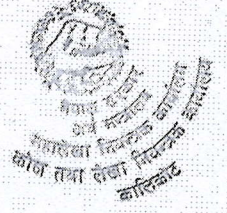 नेपाल सरकार
अर्थ मन्त्रालय
महालेखा नियन्त्रक कार्यालय
कोष तथा लेखा नियन्त्रक कार्यालय
कालिकोट